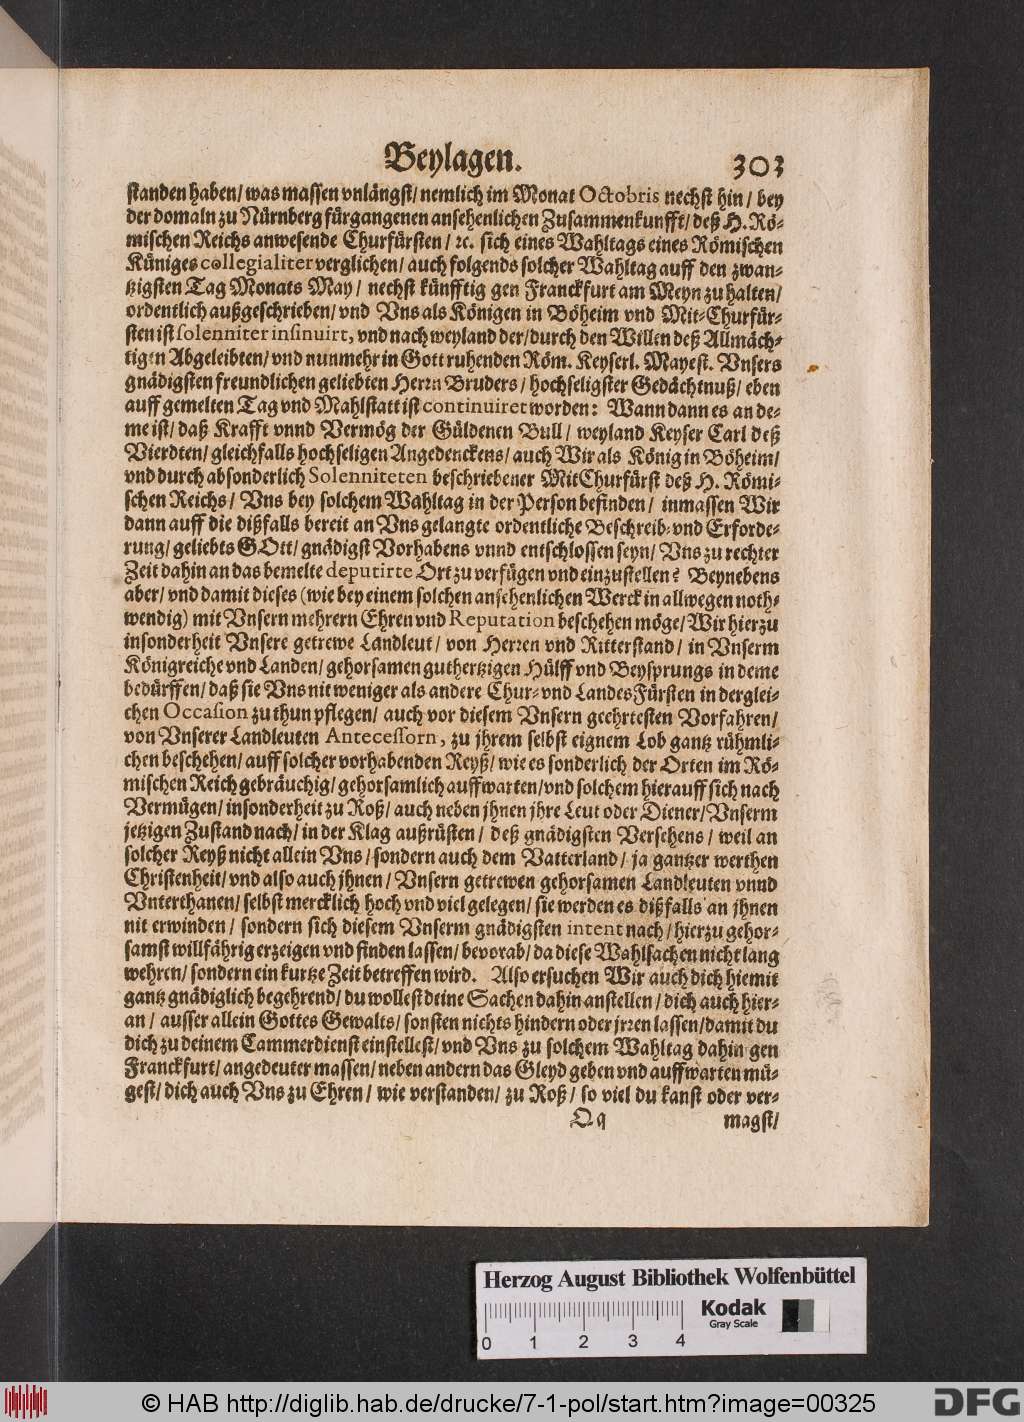 Beylagen. 303
standen haben/ was massen vnlängst/ nemlich im Monat Octobris nechst hin/ bey
der domaln zu Nürnberg fürgangenen ansehenlichen Zusammenkunfft/ deß H. Rö-
mischen Reichs anwesende Churfürsten/ ꝛc. sich eines Wahltags eines Römischen
Küniges collegialiter verglichen/ auch folgends solcher Wahltag auff den zwan-
tzigsten Tag Monats May/ nechst künfftig gen Franckfurt am Meyn zu halten/
ordentlich außgeschrieben/ vnd Vns als Königen in Böheim vnd Mit-Churfür-
sten ist solenniter insinuirt, vnd nach weyland der/ durch den Willen deß Allmäch-
tigen Abgeleibten/ vnd nunmehr in Gott ruhenden Röm. Keyserl. Mayest. Vnsers
gnädigsten freundlichen geliebten Herrn Bruders/ hochseligster Gedächtnuß/ eben
auff gemelten Tag vnd Mahlstatt ist continuiret worden: Wann dann es an de-
me ist/ daß Krafft vnnd Vermög der Güldenen Bull/ weyland Keyser Carl deß
Vierdten/ gleichfalls hochseligen Angedenckens/ auch Wir als König in Böheim/
vnd durch absonderlich Solenniteten beschriebener MitChurfürst deß H. Römi-
schen Reichs/ Vns bey solchem Wahltag in der Person befinden/ inmassen Wir
dann auff die dißfalls bereit an Vns gelangte ordentliche Beschreib- vnd Erforde-
rung/ geliebts GOtt/ gnädigst Vorhabens vnnd entschlossen seyn/ Vns zu rechter
Zeit dahin an das bemelte deputirte Ort zu verfügen vnd einzustellen? Beynebens
aber/ vnd damit dieses (wie bey einem solchen ansehenlichen Werck in allwegen noth-
wendig) mit Vnsern mehrern Ehren vnd Reputation beschehen möge/ Wir hierzu
insonderheit Vnsere getrewe Landleut/ von Herren vnd Ritterstand/ in Vnserm
Königreiche vnd Landen/ gehorsamen guthertzigen Hülff vnd Beysprungs in deme
bedürffen/ daß sie Vns nit weniger als andere Chur- vnd LandesFürsten in derglei-
chen Occasion zu thun pflegen/ auch vor diesem Vnsern geehrtesten Vorfahren/
von Vnserer Landleuten Antecessorn, zu jhrem selbst eignem Lob gantz rühmli-
chen beschehen/ auff solcher vorhabenden Reyß/ wie es sonderlich der Orten im Rö-
mischen Reich gebräuchig/ gehorsamlich auffwarten/ vnd solchem hierauff sich nach
Vermügen/ insonderheit zu Roß/ auch neben jhnen jhre Leut oder Diener/ Vnserm
jetzigen Zustand nach/ in der Klag außrüsten/ deß gnädigsten Versehens/ weil an
solcher Reyß nicht allein Vns/ sondern auch dem Vatterland/ ja gantzer werthen
Christenheit/ vnd also auch jhnen/ Vnsern getrewen gehorsamen Landleuten vnnd
Vnterthanen/ selbst mercklich hoch vnd viel gelegen/ sie werden es dißfalls an jhnen
nit erwinden/ sondern sich diesem Vnserm gnädigsten intent nach/ hierzu gehor-
samst willfährig erzeigen vnd finden lassen/ bevorab/ da diese Wahlsachen nicht lang
wehren/ sondern ein kurtze Zeit betreffen wird. Also ersuchen Wir auch dich hiemit
gantz gnädiglich begehrend/ du wollest deine Sachen dahin anstellen/ dich auch hier-
an/ ausser allein Gottes Gewalts/ sonsten nichts hindern oder jrren lassen/ damit du
dich zu deinem Cammerdienst einstellest/ vnd Vns zu solchem Wahltag dahin gen
Franckfurt/ angedeuter massen/ neben andern das Gleyd geben vnd auffwarten mü-
gest/ dich auch Vns zu Ehren/ wie verstanden/ zu Roß/ so viel du kanst oder ver-
Qq magst/
Herzog August Bibliothek Wolfenbüttel
0 1 2 3 4
Kodak
Gray Scale
© HAB http://diglib.hab.de/drucke/7-1-pol/start.htm?image=00325
DFG